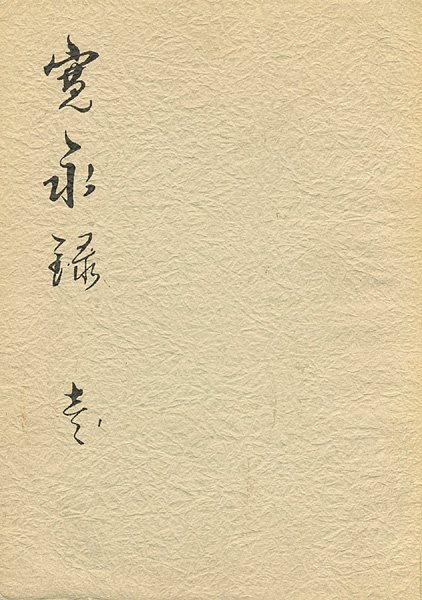 寛永録 壱